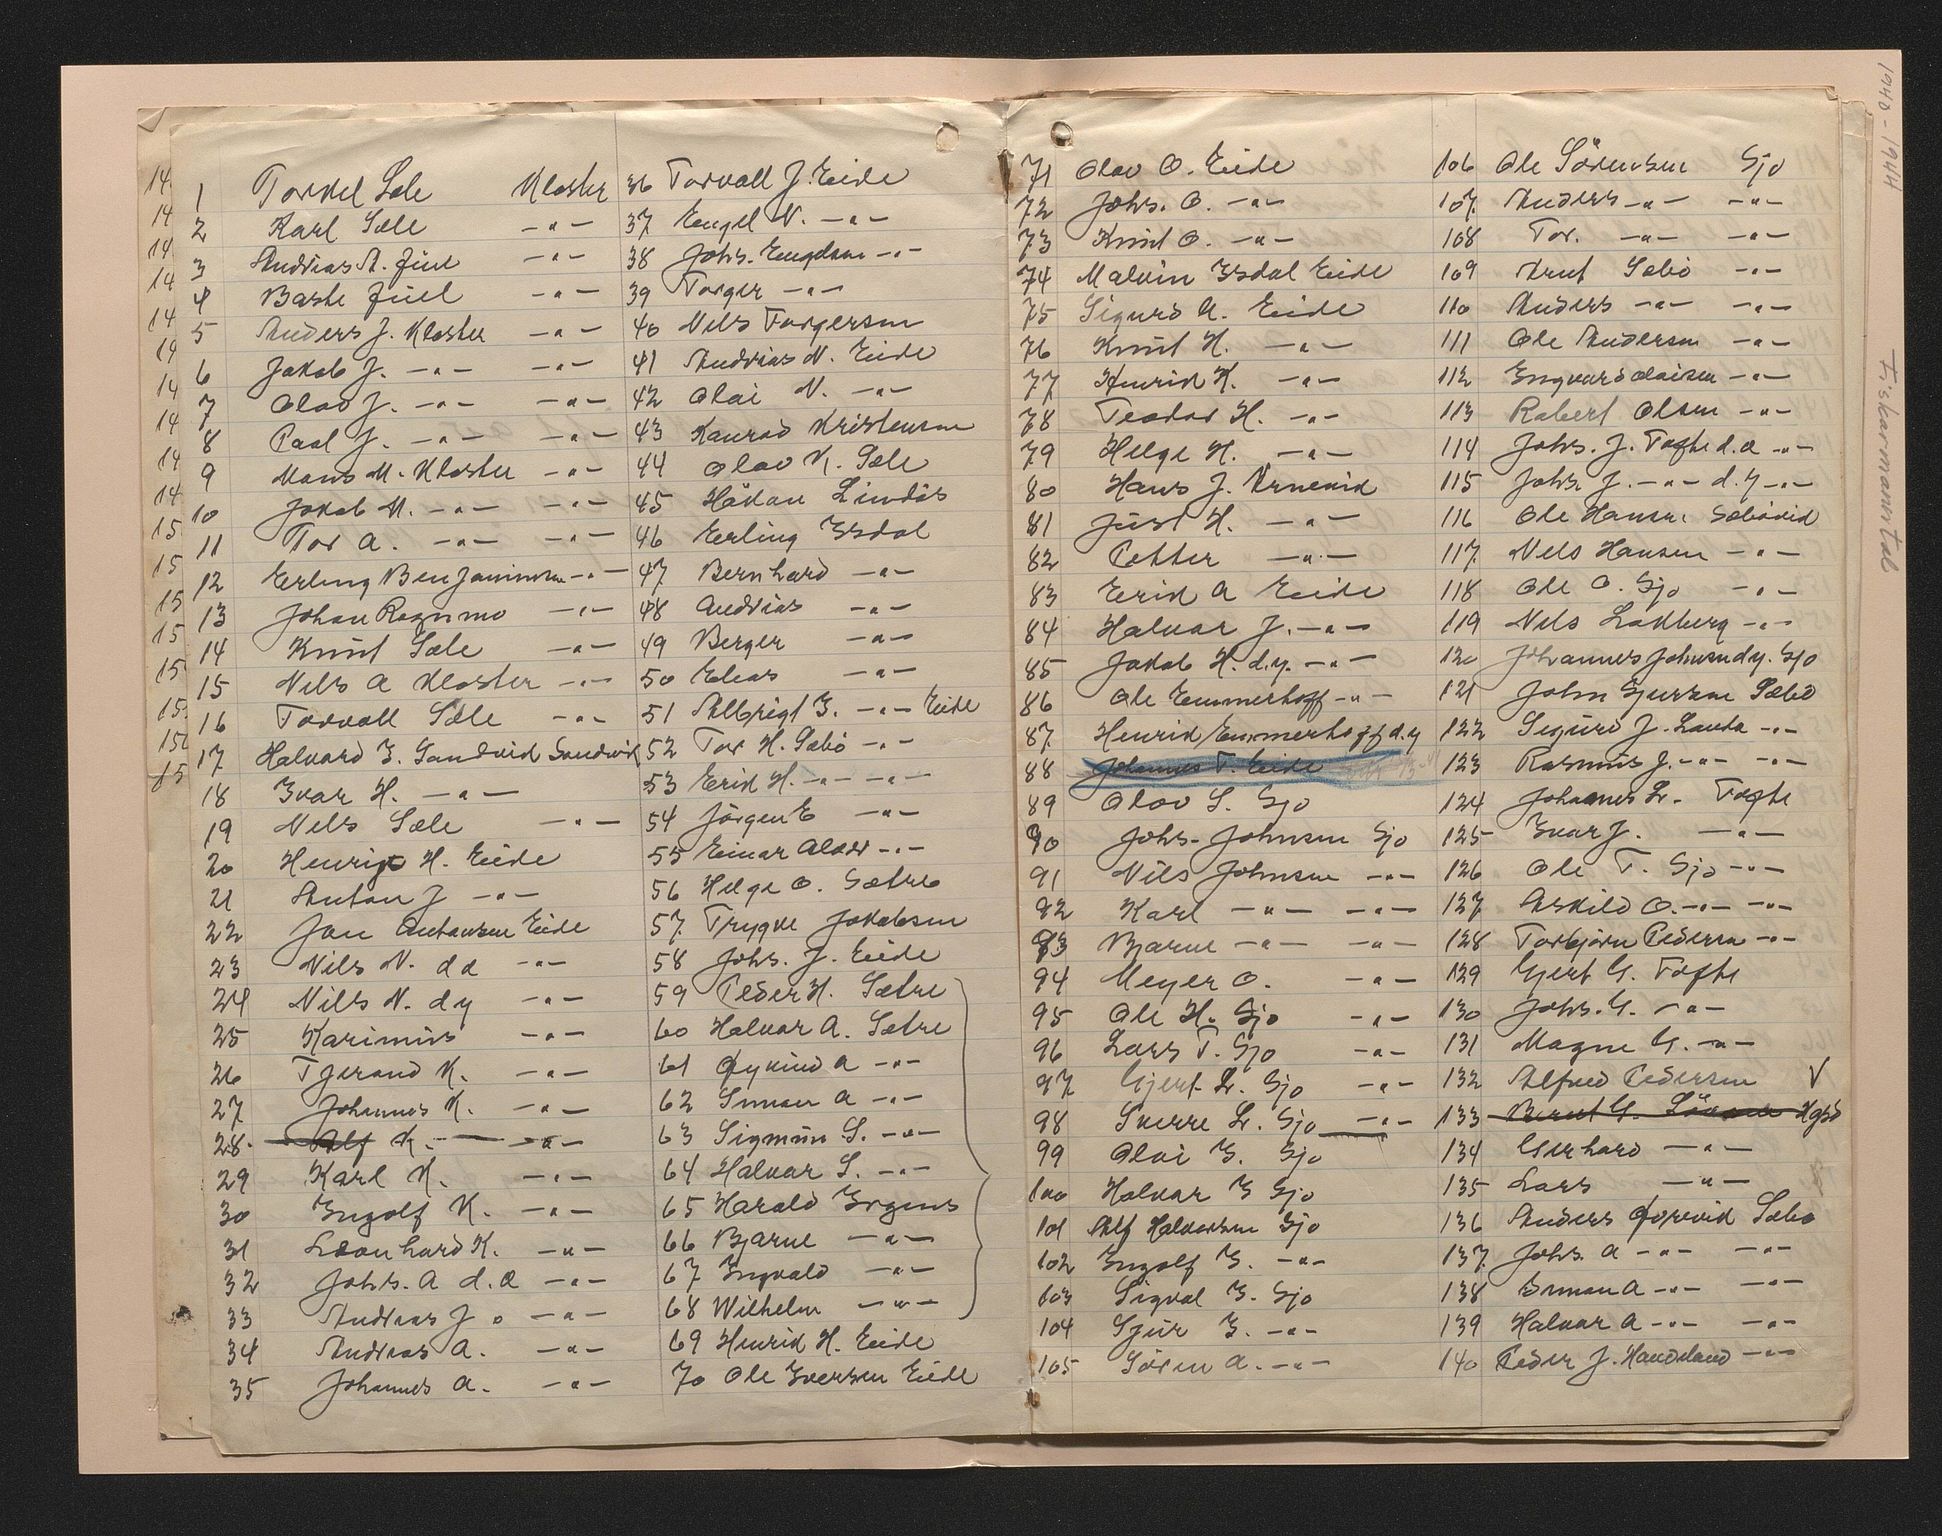 1940-1944
Fiskermanntal
1 Torkel Sæle Kloster
2 Karl Sæle -"-
3 Andrias A. Juul -"-
4 Juel -"-
5 Anders J. Kloster -"-
6 Jakob J. -"- -"-
7 Olav J. -"- -"-
8 Paal J. -"- -"-
9 Mons M. Kloster -"-
10 Jakob M. -"- -"-
11 Tor A. -"- -"-
12 Erling Benjaminsen -"-
13 Johan -"-
14 Knut Sæle -"-
15 Nils A Kloster -"-
16 Torvall Sæle -"-
17 Halvard I. Sandvik Sandvik
18 Ivar H. -"-
19 Nils Sæle -"-
20 Henrik H. Eide
21 Anton J -"-
22 Jan Antonsen Eide
23 Nils N. d e -"-
24 Nils N. d y -"-
25 Karimius -"-
26 Tjerand K. -"-
27 Johannes K. -"-
28. Alf K. -"-
29 Karl K. -"-
30 Ingolf K. -"-
31 Leonhard K. -"-
32 Johs. A d.e -"-
33 Andreas J o -"-
34 Andreas A. -"-
35 Johannes A. -"-
36 Torvall J. Eide
37 Engel N. -"-
38 Johs. Engelsen -"-
39 Torger -"-
40 Nils Torgersen
41 Andrias N. Eide
42 Olai N. -"-
43 Konrad Kristensen
44 Olav K. Sæle
45 Håkon Lindås
46 Erling Ysdal
47 Bernhard -"-
48 Andrias -"-
49 Berger -"-
50 Elias -"-
51 Albrigt I. -"- Eide
52 Tor H. Sæbø -"-
53 Erik H. -"- -"-
54 Jørgen E -"-
55 Einar -"-
56 Helge O. Sætre
57 Trygve Jakobsen
58 Johs. J. Eide
59 Peder H. Sætre
60 Halvar A. Sætre
61 Øyvind A -"-
62 Simon A -"-
63 Sigmun S. -"-
64 Halvar S. -"-
65 Harald Yrgens
66 Bjarne -"-
67 Ingvald -"-
68 Wilhelm -"-
69 Henrik H. Eide
70 Ole Iversen Eide
71 Olav O. Eide
72 Johs. O. -"-
73 Knut O. -"-
74 Malvin Ysdal Eide
75 Sigurd K. Eide
76 Knut H. -"-
77 Henrik H. -"-
78 Teodor H. -"-
79 Helge H. -"-
80 Hans J. Kernevik
81 Just H. -"-
82 Petter -"-
83 Erik A Eide
84 Halvar J. -"-
85 Jakob H. d.y. -"-
86 Ole Emmerhoff -"-
87 Henrik Emmerhoff d.y
88 Johannes T. Eide
89 Olav S. Sjo
90 Johs. Johnsen Sjo
91 Nils Johnsen -"-
92 Karl -"- -"-
93 Bjarne -"- -"-
94 Meyer O. -"-
95 Ole H. Sjo -"-
96 Lars T. Sjo -"-
97 Gjert L. Sjo -"-
98 Sverre L. Sjo -"-
99 Olai I. Sjo
100 Halvar I Sjo
101 Alf Halvorsen Sjo
102 Ingolf I. -"-
103 Sigval I. Sjo
104 Sjur I. -"-
105 Søren A. -"-
106 Ole Sørensen Sjo
107 Anders -"- -"-
108 Tor. -"- -"-
109 Knut Sæbø -"-
110 Anders -"- -"-
111 Ole Andersen -"-
112 Ingvard Olaisen -"-
113 Robert Olsen -"-
114 Johs. J. Tofte d.e -"-
115 Johs J. -"- d.y -"-
116 Ole Hansen Sæbøvik
117 Nils Hansen -"-
118 Ole O. Sjo -"-
119 Nils Lokberg -"-
120 Johannes Johnsen d.y. Sjo
121 John Gjursen Sæbø
122 Sigurd J. Landa -"-
123 Rasmus J. -"- -"-
124 Johannes L. Tofte
125 Ivar J. -"-
126 Ole T. Sjo -"-
127 Askild O. -"- -"-
128 Torbjørn Pedersen -"-
129 Gjert G. Tofte
130 Johs. G. -"-
131 Magne G. -"-
132 Alfred Pedersen V
133 Bernt G.
134 Gerhard -"-
135 Lars -"-
136 Anders Sæbø
137 Johs. A -"- -"-
138 Simon A -"- -"-
139 Halvar A -"- -"-
140 Peder J. Handeland -"-